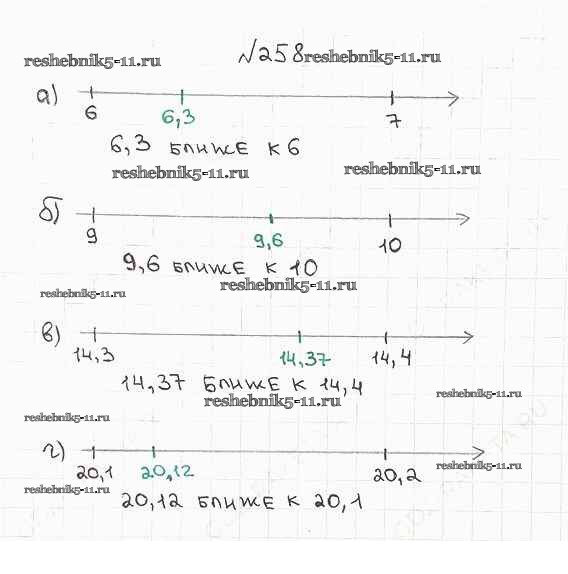 reshebnik5-11.ru №258 reshebnik5-11.ru
а) 6 6,3 7
6,3 ближе к 6
reshebnik5-11.ru reshebnik5-11.ru
б) 9 9,6 10
9,6 ближе к 10
reshebnik5-11.ru
reshebnik5-11.ru
в) 14,3 14,37 14,4
14,37 ближе к 14,4
reshebnik5-11.ru
reshebnik5-11.ru
reshebnik5-11.ru
г) 20,1 20,12 20,2
reshebnik5-11.ru
reshebnik5-11.ru
20,12 ближе к 20,1